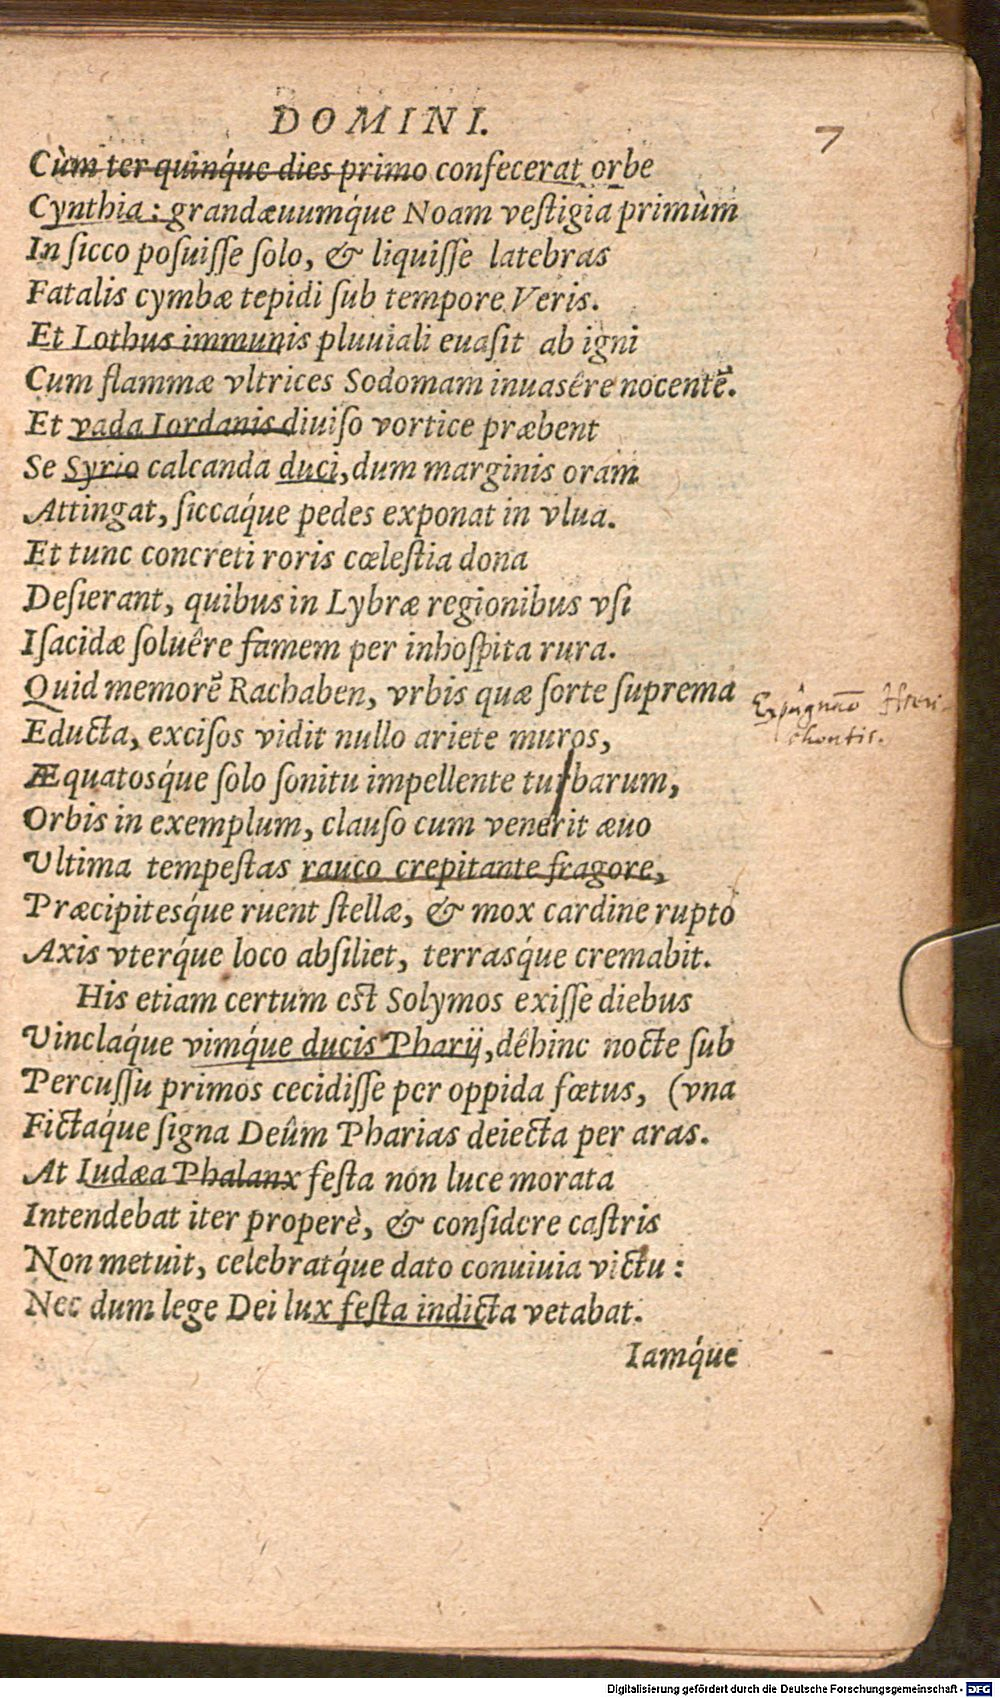 DOMINI.
7
Cùm ter quinq́ue dies primo confecerat orbe
Cynthia: grandæuumq́ue Noam veſtigia primùm
In ſicco poſuiſſe ſolo, & liquiſſe latebras
Fatalis cymbæ tepidi ſub tempore Veris.
Et Lothus immunis pluuiali euaſit ab igni
Cum flammæ vltrices Sodomam inuasêre nocentē.
Et vada Iordanis diuiſo vortice præbent
Se Syrio calcanda duci, dum marginis oram
Attingat, ſiccaq́ue pedes exponat in vlua.
Et tunc concreti roris cœleſtia dona
Deſierant, quibus in Lybræ regionibus vſi
Iſacidæ ſoluêre famem per inhoſpita rura.
Quid memorē Rachaben, vrbis quæ ſorte ſuprema
Educta, exciſos vidit nullo ariete muros,
Æquatosq́ue ſolo ſonitu impellente turbarum,
Orbis in exemplum, clauſo cum venerit æuo
Ultima tempeſtas rauco crepitante fragore,
Præcipitesq́ue ruent ſtellæ, & mox cardine rupto
Axis vterq́ue loco abſiliet, terrasq́ue cremabit.
His etiam certum eſt Solymos exiſſe diebus
Uinclaq́ue vimq́ue ducis Pharij, dêhinc nocte ſub
Percuſſu primos cecidiſſe per oppida fœtus, (vna
Fictaq́ue ſigna Deûm Pharias deiecta per aras.
At Iudæa Phalanx feſta non luce morata
Intendebat iter properè, & conſidere caſtris
Non metuit, celebratq́ue dato conuiuia victu:
Nec dum lege Dei lux feſta indicta vetabat.
Iamq́ue
Expugnāo Hieri-
chontis.
Digitalisierung gefördert durch die Deutsche Forschungsgemeinschaft - DFG